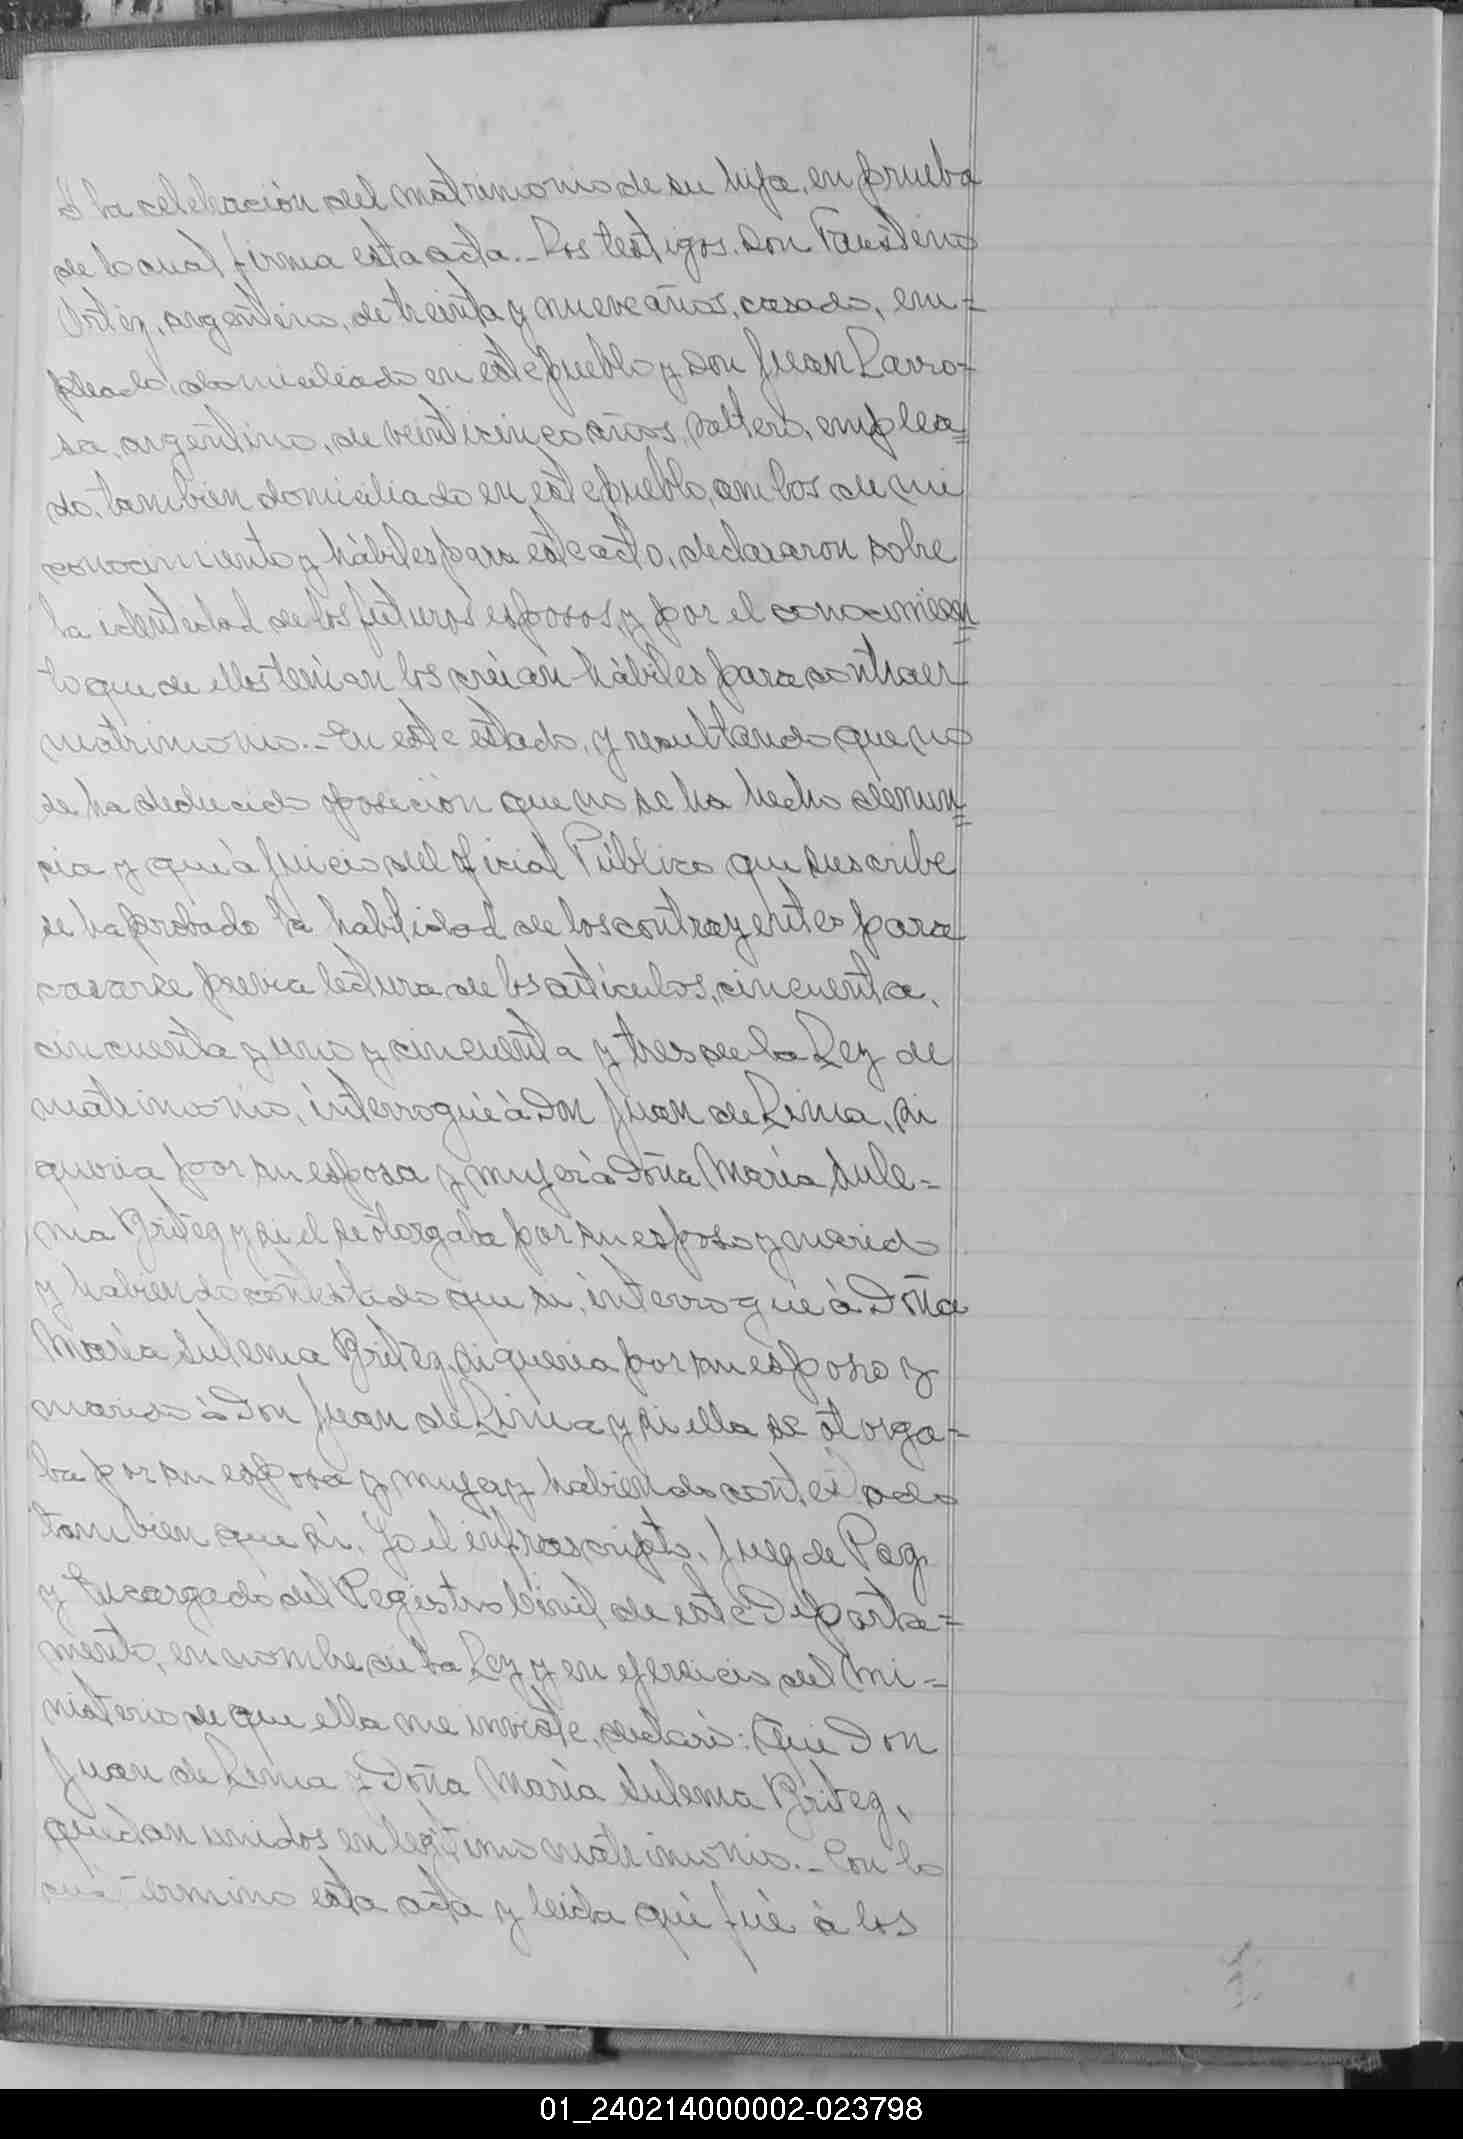 á la celebración del matrimonio de su hija, en prueba
de lo cual firma esta acta.- Los testigos. Don Faustino
Ortiz, argentino, de treinta y nueve años, casado, em=
pleado, domiciliado en este pueblo y Don Juan Larro=
sa, argentino, de veinticinco años, soltero, emplea=
do, tambien domiciliado en este pueblo, ambos de mi
conocimiento y hábiles para este acto, declararon sobre
la identidad de los futuros esposos, y por el conocimien=
to que de ellos tenian los créian hábiles para contraer
matrimonio.- En este estado, y resultando que no
se ha deducido posicion que no se ha hecho denun=
cia y que á juicio del oficial Público que suscribe
se ha probado la habilidad de los contrayentes para
casarse previa lectura de los artículos, cincuenta,
cincuenta y uno y cincuenta y tres de la Ley de
matrimonio, interrogué á Don Juan de Lima, si
queria por su esposa y mujer á Doña María Sule=
ma Britez y si el se otorgaba por su esposo y marido
y habiendo contestado que si, interrogué á Doña
María Sulema Britez, si queria por su esposo y
marido á Don Juan de Lima y si ella se otorga=
ba por su esposa y mujer y habiendo contestado
tambien que si. Yo el infrascripto, Juez de Paz
y Encargado del Registro Civil de este Departa=
mento, en nombre de la Ley y en ejercicio del Mi=
nisterio de que ella me inviste, declaro: Que Don
Juan de Lima y Doña María Sulema Britez,
quedan unidos en legítimo matrimonio.- Con lo
termino esta acta y leida que fué á los
01_240214000002-023798